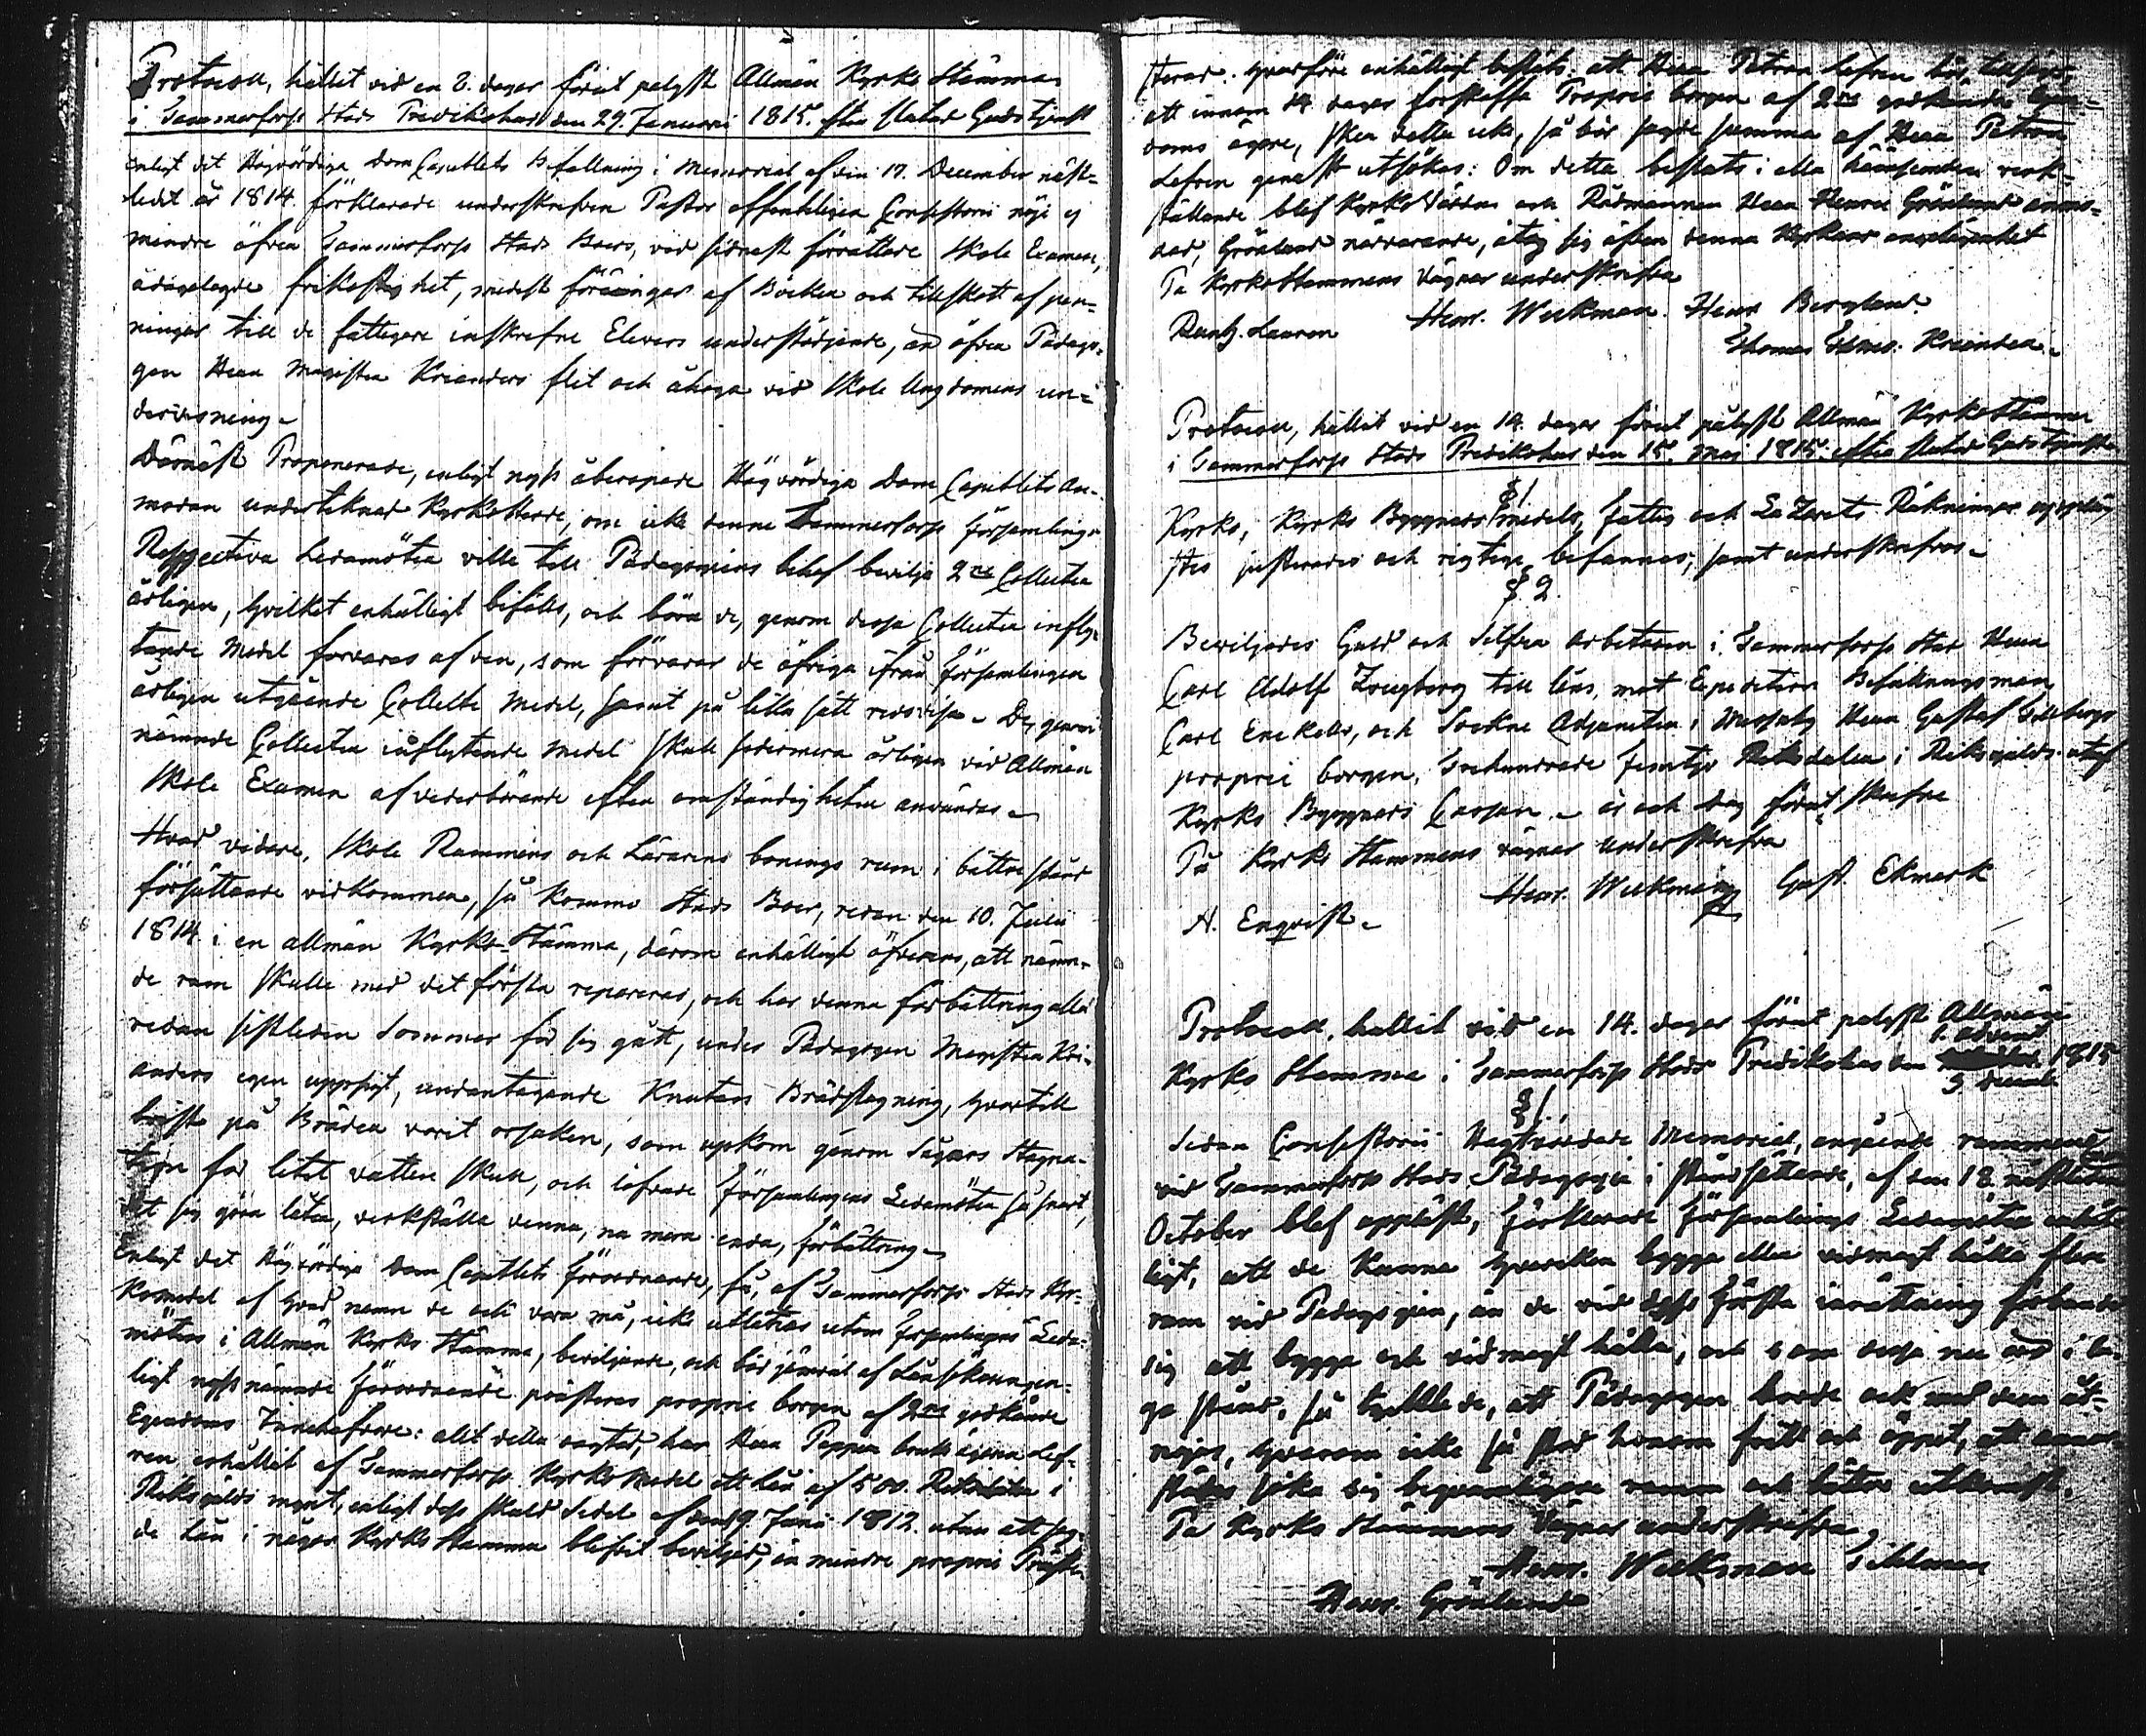 Protocoll, hållet vid en 8. dagar förut pålyst Allmän Kyrko Stämma
i Tammerfors Stads Predikohus den 29. Januarii 1815. efter slutad Gudstjenst
Enligt det Högvördiga Dom Capitlets Befallning i Memorial af den 17. December näst-
ledit år 1814. förklarade underskrefven Pastor offenteligen Consistorii nöje ej
mindre öfver Tammerfors Stads Boers, vid sidnast förrättade Skole Examen,
ådagalagde frikostighet, medelst föräringar af Böcker och tillskott af pen-
ningar till de fattigare inskrefne Elevers understödjande, än öfver Pædago-
gen Herr Magister Krianders flit och åhoga vid Skole Ungdomens un-
dervisning.
Därnäst Proponerade, enligt nyss åberopade Högvördiga Dom Capitlets An-
modan undertecknad Kyrkoherde, om icke denne Tammerfors Församlings
Respective Ledamöter ville till Pædagogiens behof bevilja 2ne Collecter
årligen, hvilket enhälligt bifölls, och böra de, genom dessa Collecter infly-
tande Medel förvaras af den, som förvarar de öfriga ifrån Församlingen
årligen utgående Collecte Medel, samt på lika sätt redovisa. De, genom
nämnde Collecter inflytande Medel skall sedermera årligen vid Allmän
Skole Examen af vederbörande efter omständigheter användas.
Hvad vidare, Skole Rummens och Lärarens bonings rum i bättre stånd
försättande vidkommer, så kommo Stads Boer, redan den 10. Julii
1814. i en allmän Kyrko-Stämma, därom enhälligt öfverens, att nämn-
de rum skulle med det första repareras, och har denna förbättring alla
redan sistleden Sommar för sig gått, under Pædagogen Magister Kri-
anders egen uppsigt, undantagande Knutars Brädslagning, hvartill
brist på Bräder varit orsaken, som upkom genom Sågars Stagna-
tion för litet vatten skull, och lofvade Församlingens Ledamöter så snart,
det sig göra låter, verkställa denna, nu mera enda, förbättring.
Enligt det Högvördiga Dom Capitlets Förordnande, få, af Tammerfors Stads Kyr-
komedel af hvad namn de ock vara må, icke utlånas utom Församlingens Leda-
möters i Allmän Kyrko Stämma, beviljande, och bör jemväl af Lånsökaren, en-
ligt nyssnämnde Förordnande præsteras proprie borgen af 2ne godkände
Egendoms Innehafvare: allt detta oagtadt, har Herr Pappers bruks ägaren Lef-
ren erhållit af Tammerfors Kyrko Medel ett lån af 500. Riksdaler i
Riksgälds mynt, enligt dess Skuld Sedel af den 9. Junii 1812. utan att sag-
de Lån i någon Kyrko Stämma blifvit beviljad, än mindre proprie
sterad. hvarföre enhälligt beslöts, att Herr Patron Lefren bör tillsäjas,
att innom 14. dagar förskaffa Proprie borgen af 2ne godkände Egen-
doms ägare, sker detta icke, så bör sagde summa af Herr Patron
Lefren genast utsökas: Om detta besluts i alla hänseenden verk-
ställande blef Kyrko Värden och Rådmannen Herr Henric Grönlund anmo-
dad, Grönlund närvarande, åtog sig äfven denna Kyrkans angelägenhet
På Kyrko Stämmans vägnar underskrefva
Lauren Henr. Weckman. Henr. Berglund.
Thomas
Protocoll, hållit vid en 14. dagar förut pålyst Allmän Kyrko Stämma
i Tammerfors Stads Predikohus den 15. Maj 1815. efter slutad Gudstjenst
§ 1
Kyrko, Kyrko Byggnads medels, fattig och Lazarets Räkningar upplä-
stes justerades och rigtige befannos, samt underskrefvos.
§ 2.
Beviljades Guld och Silfver Arbetaren i Tammerfors Stad Herr
Carl Adolf Ljungberg till låns, mot Expedition Befallningsman
Carl Enckells, och Sockne Adjuncten i Messuby Herr Gustaf
proprie borgen, Trehundrade femtijo Riksdaler i Riksgälds utaf
Kyrko Byggnads Cassan. år och dag förut skrefne
På Kyrko Stämmans vägnar underskrefva
Henr. Weckman Gust. Ekmark
A. Enqvist.
Protocoll, hållit vid en 14. dagar förut pålyst Allmän
1. advent
Kyrko Stämma i Tammerfors Stads Predikohus den 1815
3 decemb
§ 1.
Sedan Consistorii Högtvördade Memorial, angående rummens
vid Tammerfors Stads Pædagogie i stånd sättande, af den 18. nästleden
October blef uppläst, förklarade Församlings Ledamöter enhäl-
ligt, att de kunna hvarken bygga eller vidmagt hålla flere
rum vid Pædagogien, än de vid dess första inrättning förbundo
sig att bygga och vidmagt hålla, och som dessa nu äro i la-
ga stånd, så tyckte de, att Pædagogen borde ock med dem åt-
nöjas, hvarom icke så stod honom fritt och öppet, att annor-
städes söka sig beqvämligare rum och bättre utkomst.
På Kyrko Stämmans vägnar underskrefva,
Henr. Weckman
Henr. Grönlund